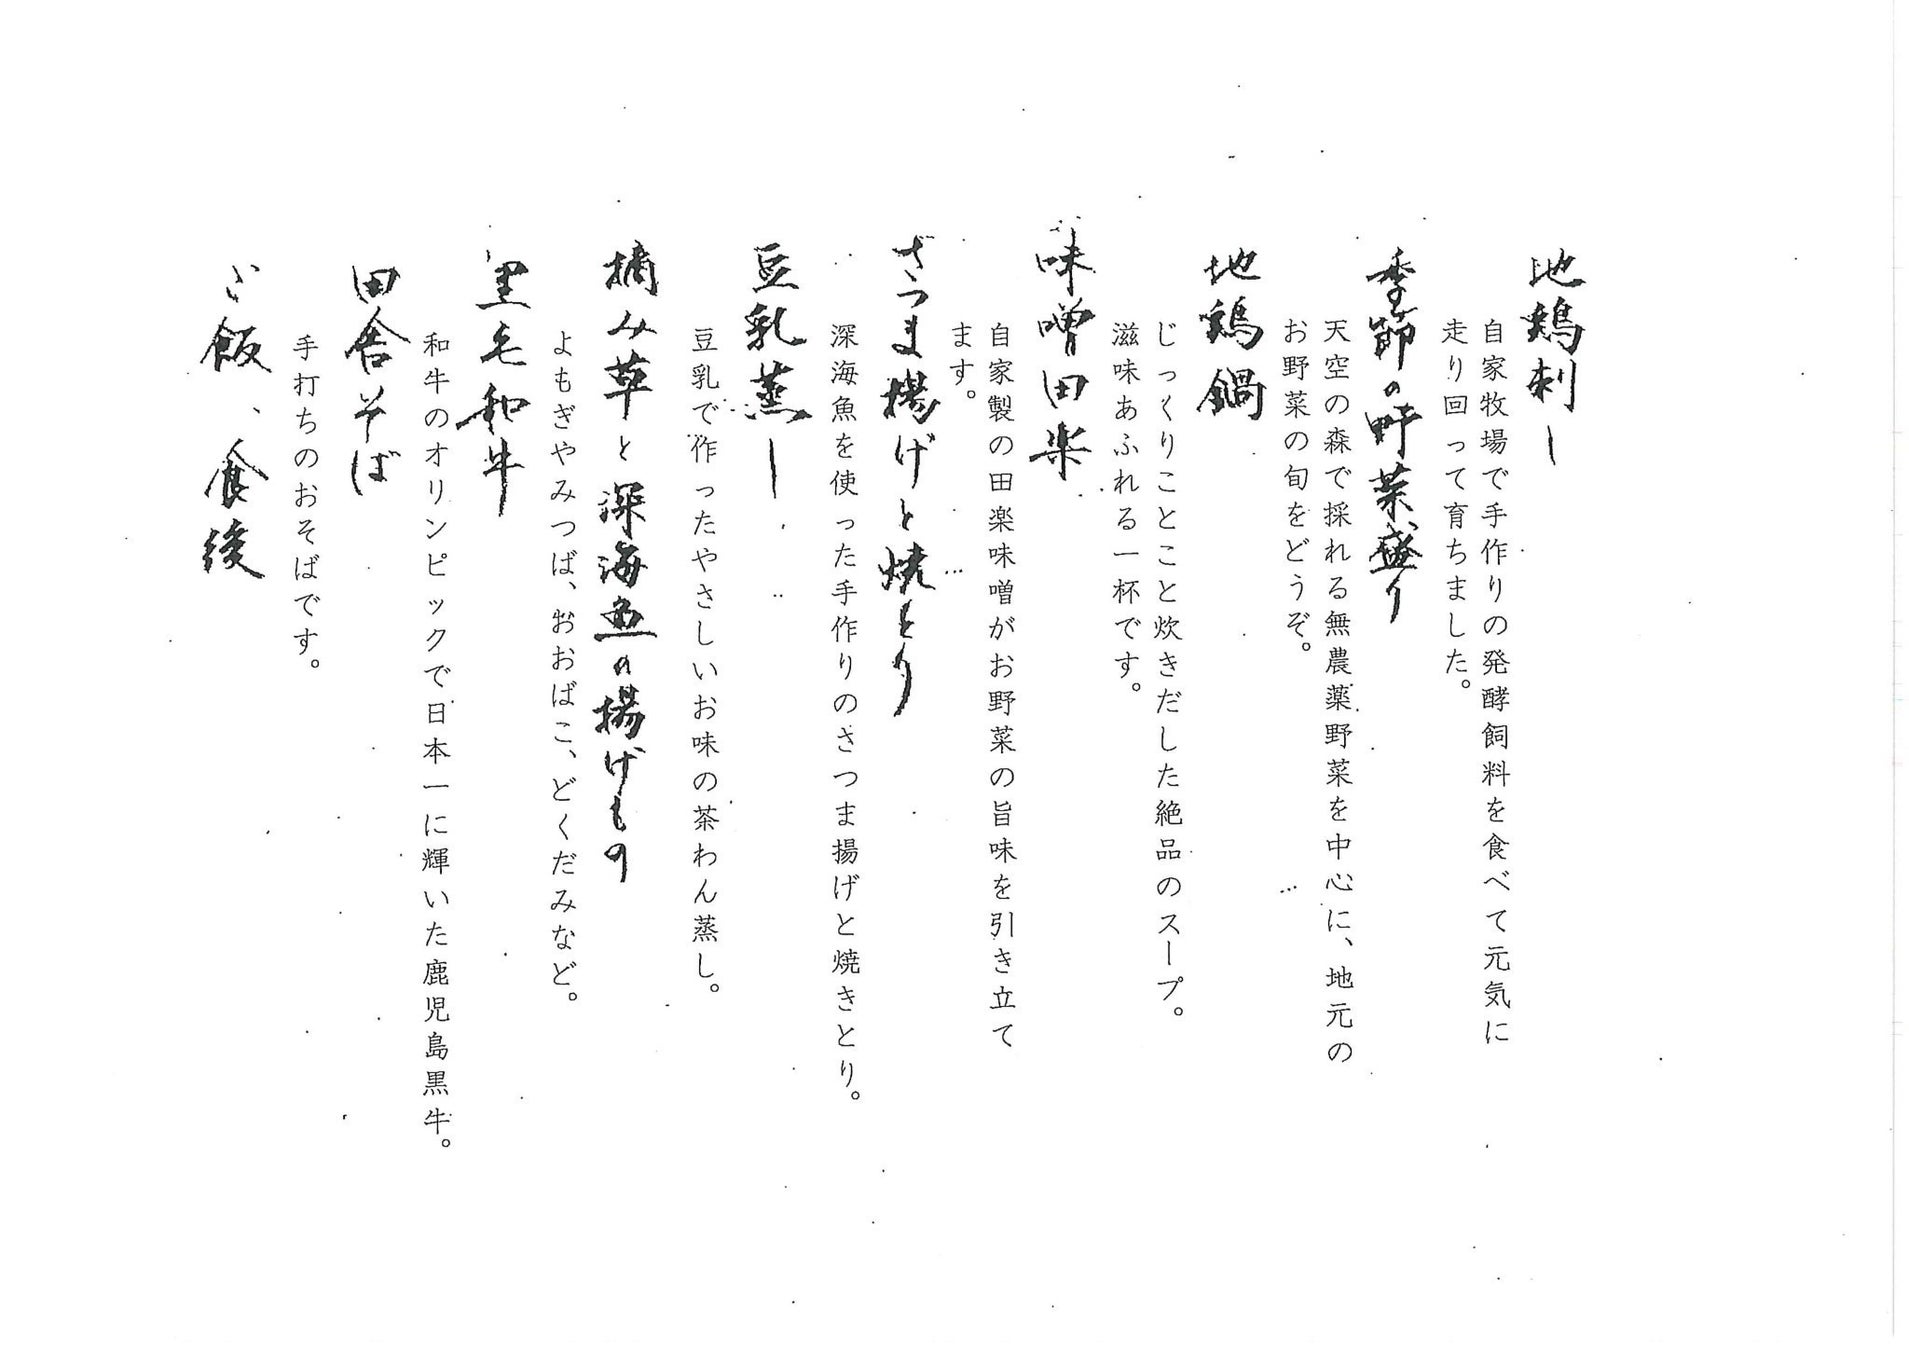 地鶏刺し
自家牧場で手作りの発酵飼料を食べて元気に
走り回って育ちました。
季節の野菜盛り
天空の森で採れる無農薬野菜を中心に、地元の
お野菜の旬をどうぞ。
地鶏鍋
じっくりことこと炊きだした絶品のスープ。
滋味あふれる一杯です。
味噌田楽
自家製の田楽味噌がお野菜の旨味を引き立て
ます。
さつま揚げと焼とり
深海魚を使った手作りのさつま揚げと焼きとり。
豆乳蒸し
豆乳で作ったやさしいお味の茶わん蒸し。
摘み草と深海魚の揚げもの
よもぎやみつば、おおばこ、どくだみなど。
黒毛和牛
和牛のオリンピックで日本一に輝いた鹿児島黒牛。
田舎そば
手打ちのおそばです。
ご飯、食後